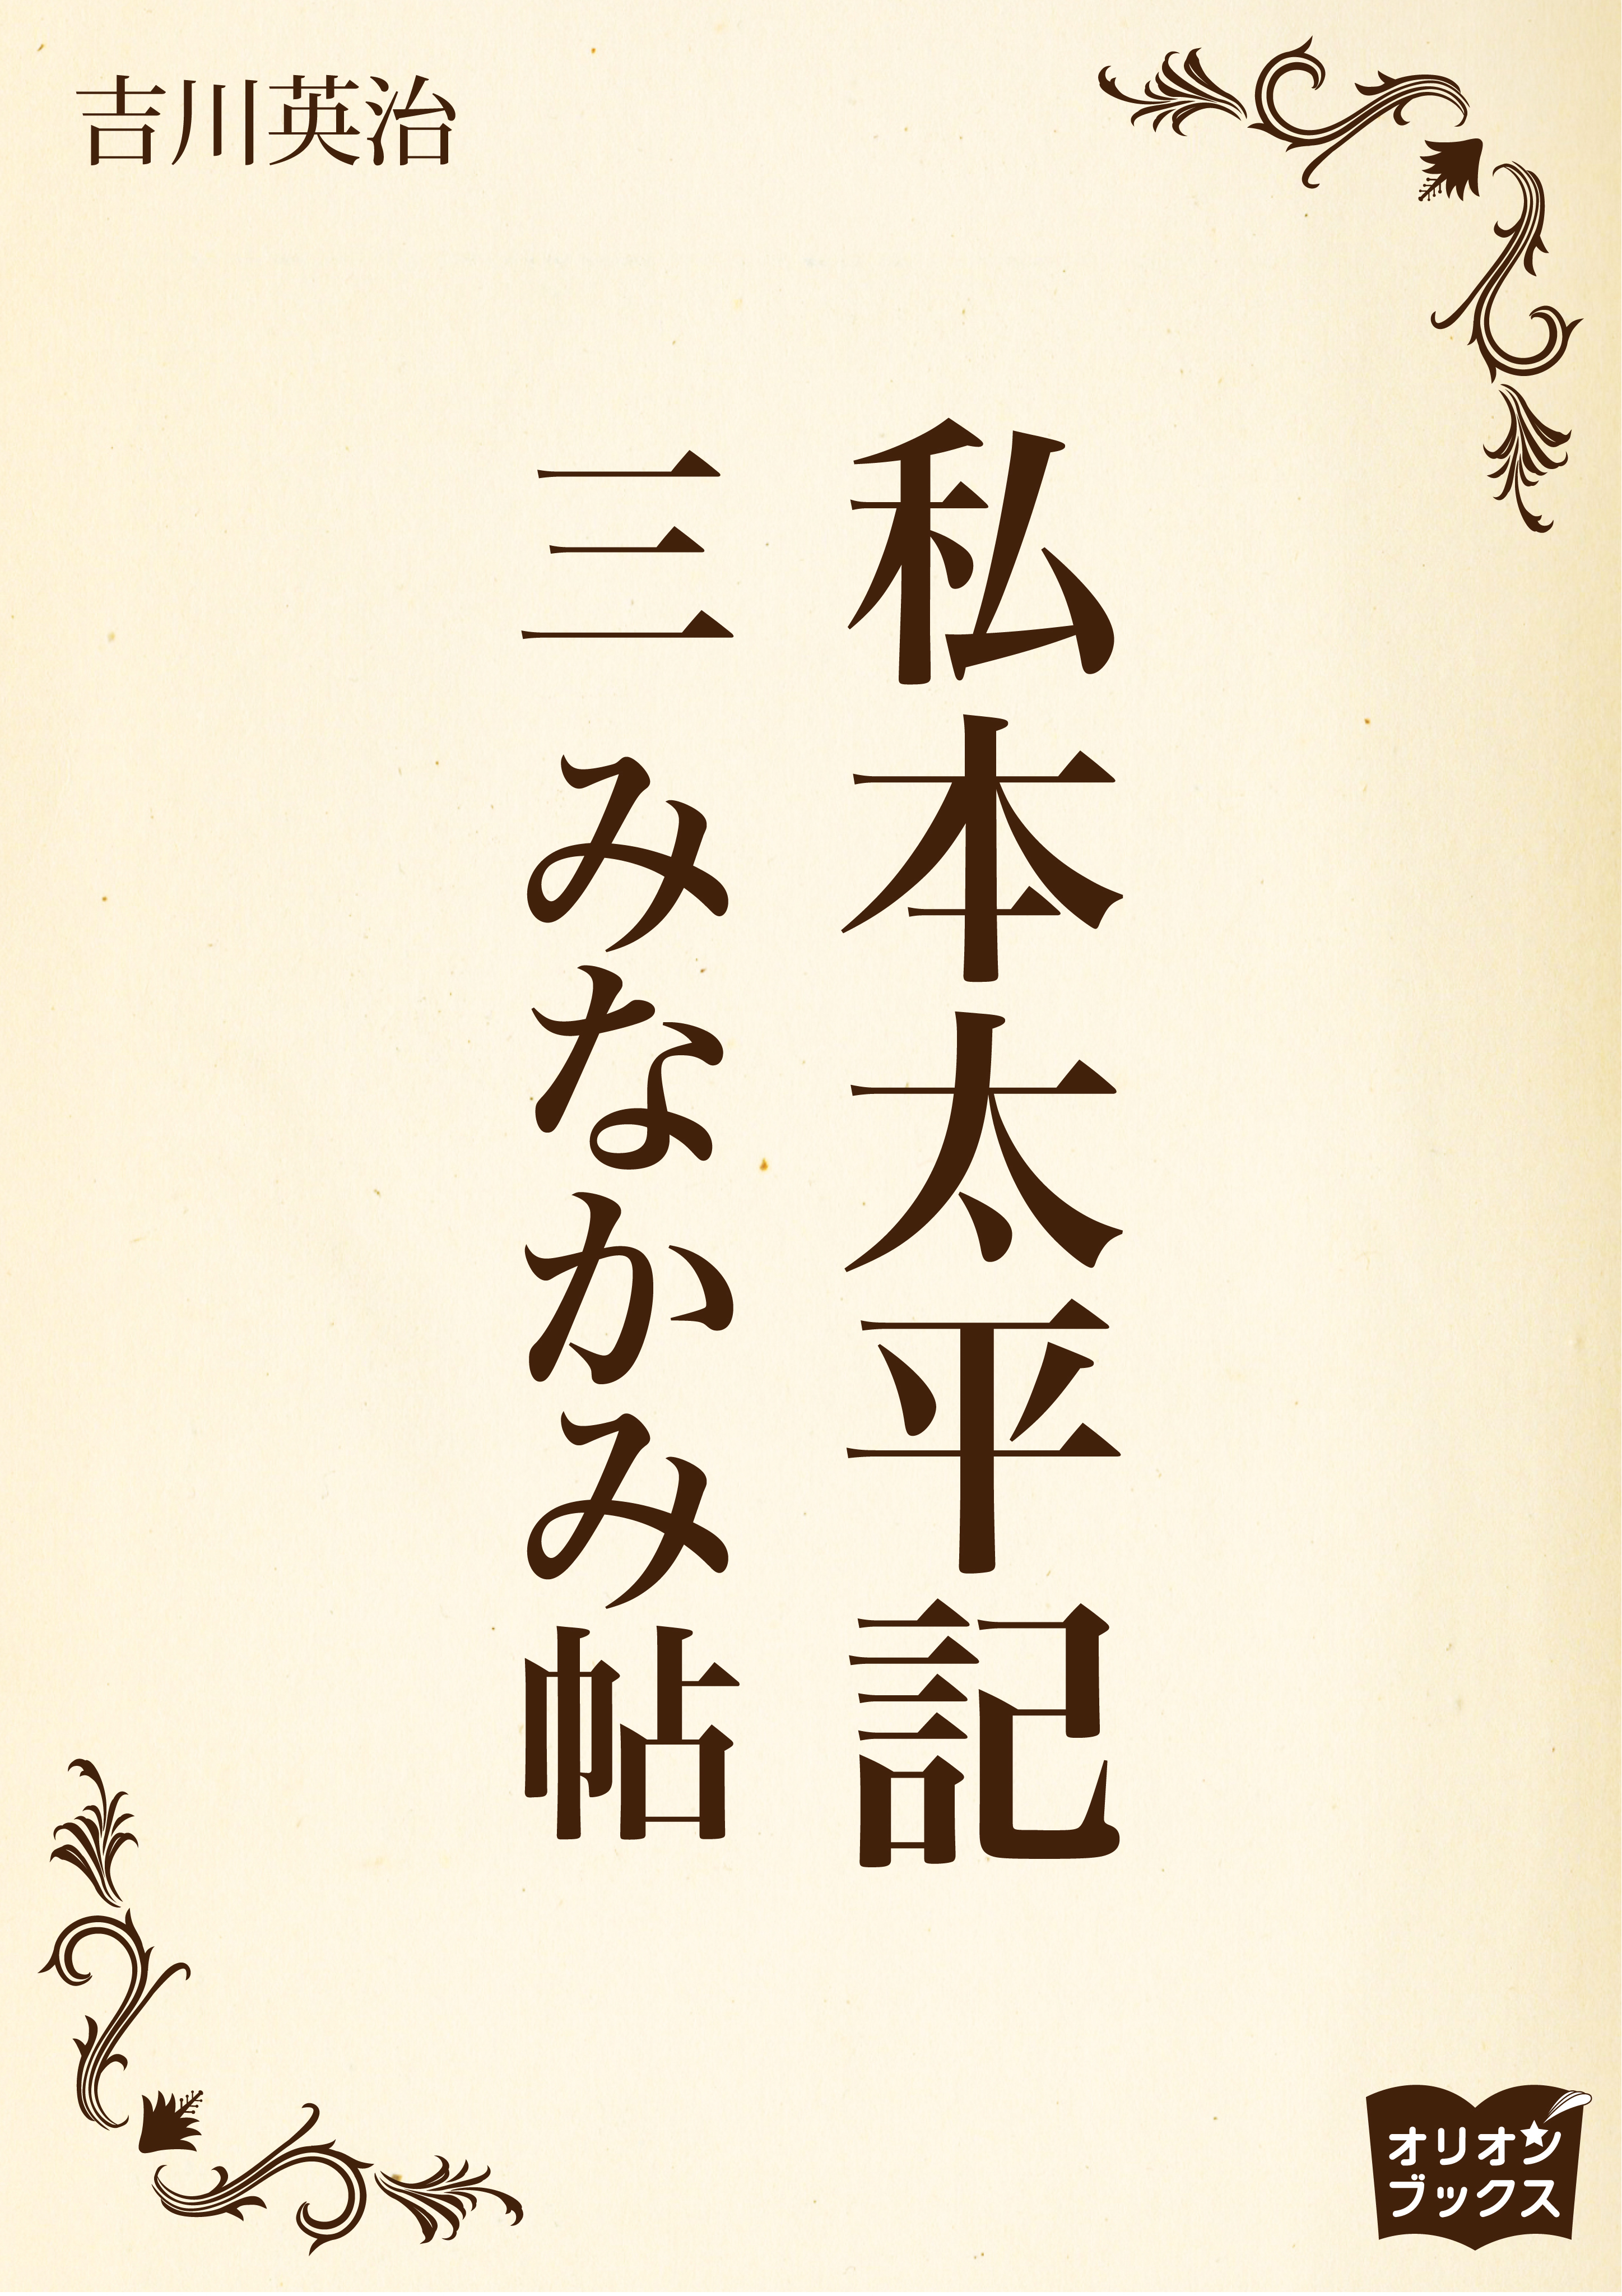 吉川英治
私本太平記
三 みなかみ帖
オリオン
ブックス